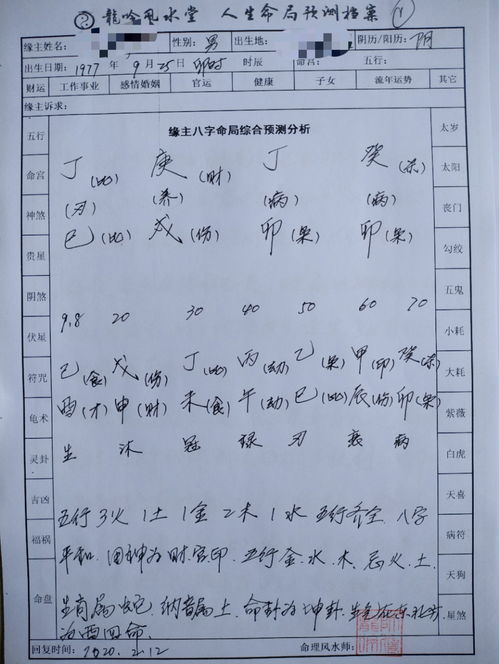 龍吟風水堂 人生命局预测档案
缘主姓名: 性别: 男 出生地: 阴历/阳历: 阴
出生日期: 1977 年 9 月 25日 卯时 时辰 命宫: 五行:
财运 工作事业 感情婚姻 官运 健康 子女 流年运势 其它
缘主诉求:
五行 缘主八字命局综合预测分析 太岁
命宫 丁(比) 庚(财) 丁 癸(杀) 太阳
神煞 (刃) (养) (病) (病) 丧门
贵星 巳(比) 戌(伤) 卯(枭) 卯(枭) 勾绞
阴煞 五鬼
伏星 9.8 20 30 40 50 60 70 小耗
符咒 己(食) 戊(伤) 丁(比) 丙(劫) 乙(枭) 甲(印) 癸(杀) 大耗
龟术 酉(才) 申(财) 未(食) 午(劫) 巳(比) 辰(伤) 卯(枭) 紫薇
灵卦 生 沐 冠 禄 刃 衰 病 白虎
吉凶 天喜
五行3火1土1金2木1水 五行齐全 八字
福祸 病符
平和 用神为财官印 五行金.水.木.忌火.土
天狗
命盘 生肖属蛇 纳音属土 命卦为坤卦 星煞
为西四命
回复时间: 2020.2.12 命理风水师: